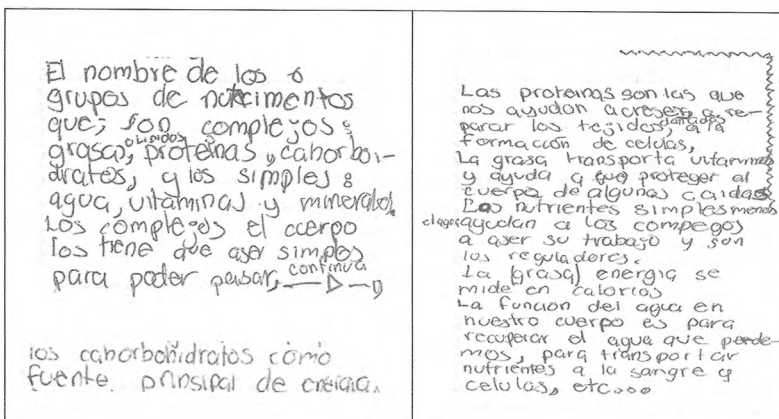 El nombre de los 6
grupos de nutrimentos
que; son complejos:
grasa, o lipidos, proteinas, cahorboi-
drates, y los simples:
agua, vitaminas y minerales
Los complejos el cuerpo
los tiene que aser simples
para poder pasar, continua
los cahorbohidratos como
fuente prinsipal de energia.
Las proteinas son las que
nos ayudan a creser, a re-
parar los tejidos, dañados a la
formacion de celulas,
La grasa transporta vitaminas
y ayuda a que proteger al
cuerpo de algunas caidas
Los nutrientes simples menos
el agua ayudan a los compegos
a aser su trabajo y son
los reguladores.
La (grasa) energia se
mide en calorias
La funcion del agua en
nuestro cuerpo es para
recuperar el agua que perde-
mos, para transportar
nutrientes a la sangre y
celulas, etc...